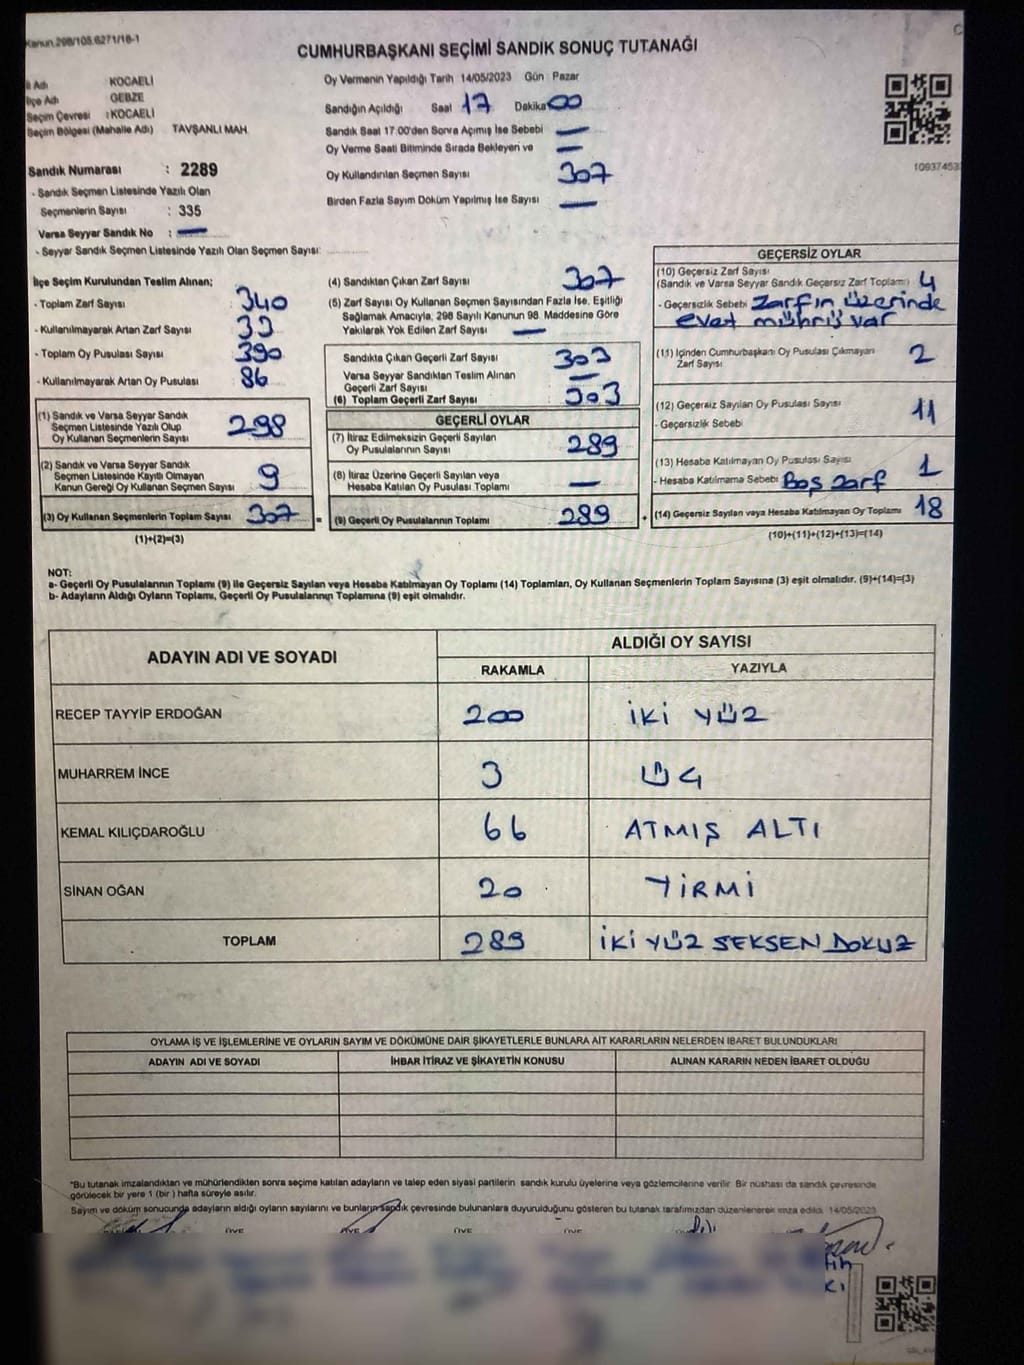 Kanun.298/105.6271/18-1
CUMHURBAŞKANI SEÇİMİ SANDIK SONUÇ TUTANAĞI
İl Adı KOCAELİ
İlçe Adı GEBZE
Seçim Çevresi : KOCAELİ
Seçim Bölgesi (Mahalle Adı) TAVŞANLI MAH.
Oy Vermenin Yapıldığı Tarih 14/05/2023 Gün Pazar
Sandığın Açıldığı Saat 17 Dakika 00
Sandık Saat 17.00'den Sonra Açımış İse Sebebi —
Oy Verme Saati Bitiminde Sırada Bekleyen ve —
Oy Kullandırılan Seçmen Sayısı 307
Birden Fazla Sayım Döküm Yapılmış İse Sayısı —
10937453
Sandık Numarası : 2289
- Sandık Seçmen Listesinde Yazılı Olan
Seçmenlerin Sayısı : 335
Varsa Seyyar Sandık No : —
- Seyyar Sandık Seçmen Listesinde Yazılı Olan Seçmen Sayısı:
İlçe Seçim Kurulundan Teslim Alınan;
- Toplam Zarf Sayısı 340
- Kullanılmayarak Artan Zarf Sayısı 33
- Toplam Oy Pusulası Sayısı 390
- Kullanılmayarak Artan Oy Pusulası 86
(1) Sandık ve Varsa Seyyar Sandık
Seçmen Listesinde Yazılı Olup
Oy Kullanan Seçmenlerin Sayısı 298
(2) Sandık ve Varsa Seyyar Sandık
Seçmen Listesinde Kayıtlı Olmayan
Kanun Gereği Oy Kullanan Seçmen Sayısı 9
(3) Oy Kullanan Seçmenlerin Toplam Sayısı 307 =
(1)+(2)=(3)
(4) Sandıktan Çıkan Zarf Sayısı 307
(5) Zarf Sayısı Oy Kullanan Seçmen Sayısından Fazla İse, Eşitliği
Sağlamak Amacıyla, 298 Sayılı Kanunun 98. Maddesine Göre
Yakılarak Yok Edilen Zarf Sayısı —
Sandıkta Çıkan Geçerli Zarf Sayısı 303
Varsa Seyyar Sandıktan Teslim Alınan
Geçerli Zarf Sayısı —
(6) Toplam Geçerli Zarf Sayısı 303
GEÇERLİ OYLAR
(7) İtiraz Edilmeksizin Geçerli Sayılan
Oy Pusulalarının Sayısı 289
(8) İtiraz Üzerine Geçerli Sayılan veya
Hesaba Katılan Oy Pusulası Toplamı —
(9) Geçerli Oy Pusulalarının Toplamı 289 +
GEÇERSİZ OYLAR
(10) Geçersiz Zarf Sayısı
(Sandık ve Varsa Seyyar Sandık Geçersiz Zarf Toplamı) 4
- Geçersizlik Sebebi Zarfın üzerinde
evet mührü var
(11) İçinden Cumhurbaşkanı Oy Pusulası Çıkmayan
Zarf Sayısı 2
(12) Geçersiz Sayılan Oy Pusulası Sayısı 11
- Geçersizlik Sebebi
(13) Hesaba Katılmayan Oy Pusulası Sayısı 1
- Hesaba Katılmama Sebebi Boş zarf
(14) Geçersiz Sayılan veya Hesaba Katılmayan Oy Toplamı 18
(10)+(11)+(12)+(13)=(14)
NOT:
a- Geçerli Oy Pusulalarının Toplamı (9) ile Geçersiz Sayılan veya Hesaba Katılmayan Oy Toplamı (14) Toplamları, Oy Kullanan Seçmenlerin Toplam Sayısına (3) eşit olmalıdır. (9)+(14)=(3)
b- Adayların Aldığı Oyların Toplamı, Geçerli Oy Pusulalarının Toplamına (9) eşit olmalıdır.
ADAYIN ADI VE SOYADI ALDIĞI OY SAYISI
RAKAMLA YAZIYLA
RECEP TAYYİP ERDOĞAN 200 İKİ YÜZ
MUHARREM İNCE 3 ÜÇ
KEMAL KILIÇDAROĞLU 66 ATMIŞ ALTI
SİNAN OĞAN 20 YİRMİ
TOPLAM 289 İKİ YÜZ SEKSEN DOKUZ
OYLAMA İŞ VE İŞLEMLERİNE VE OYLARIN SAYIM VE DÖKÜMÜNE DAİR ŞİKAYETLERLE BUNLARA AİT KARARLARIN NELERDEN İBARET BULUNDUKLARI
ADAYIN ADI VE SOYADI İHBAR İTİRAZ VE ŞİKAYETİN KONUSU ALINAN KARARIN NEDEN İBARET OLDUĞU
"Bu tutanak imzalandıktan ve mühürlendikten sonra seçime katılan adayların ve talep eden siyasi partilerin sandık kurulu üyelerine veya gözlemcilerine verilir. Bir nüshası da sandık çevresinde
görülecek bir yere 1 (bir ) hafta süreyle asılır.
Sayım ve döküm sonucunda adayların aldığı oyların sayılarını ve bunların sandık çevresinde bulunanlara duyurulduğunu gösteren bu tutanak tarafımızdan düzenlenerek imza edildi. 14/05/2023